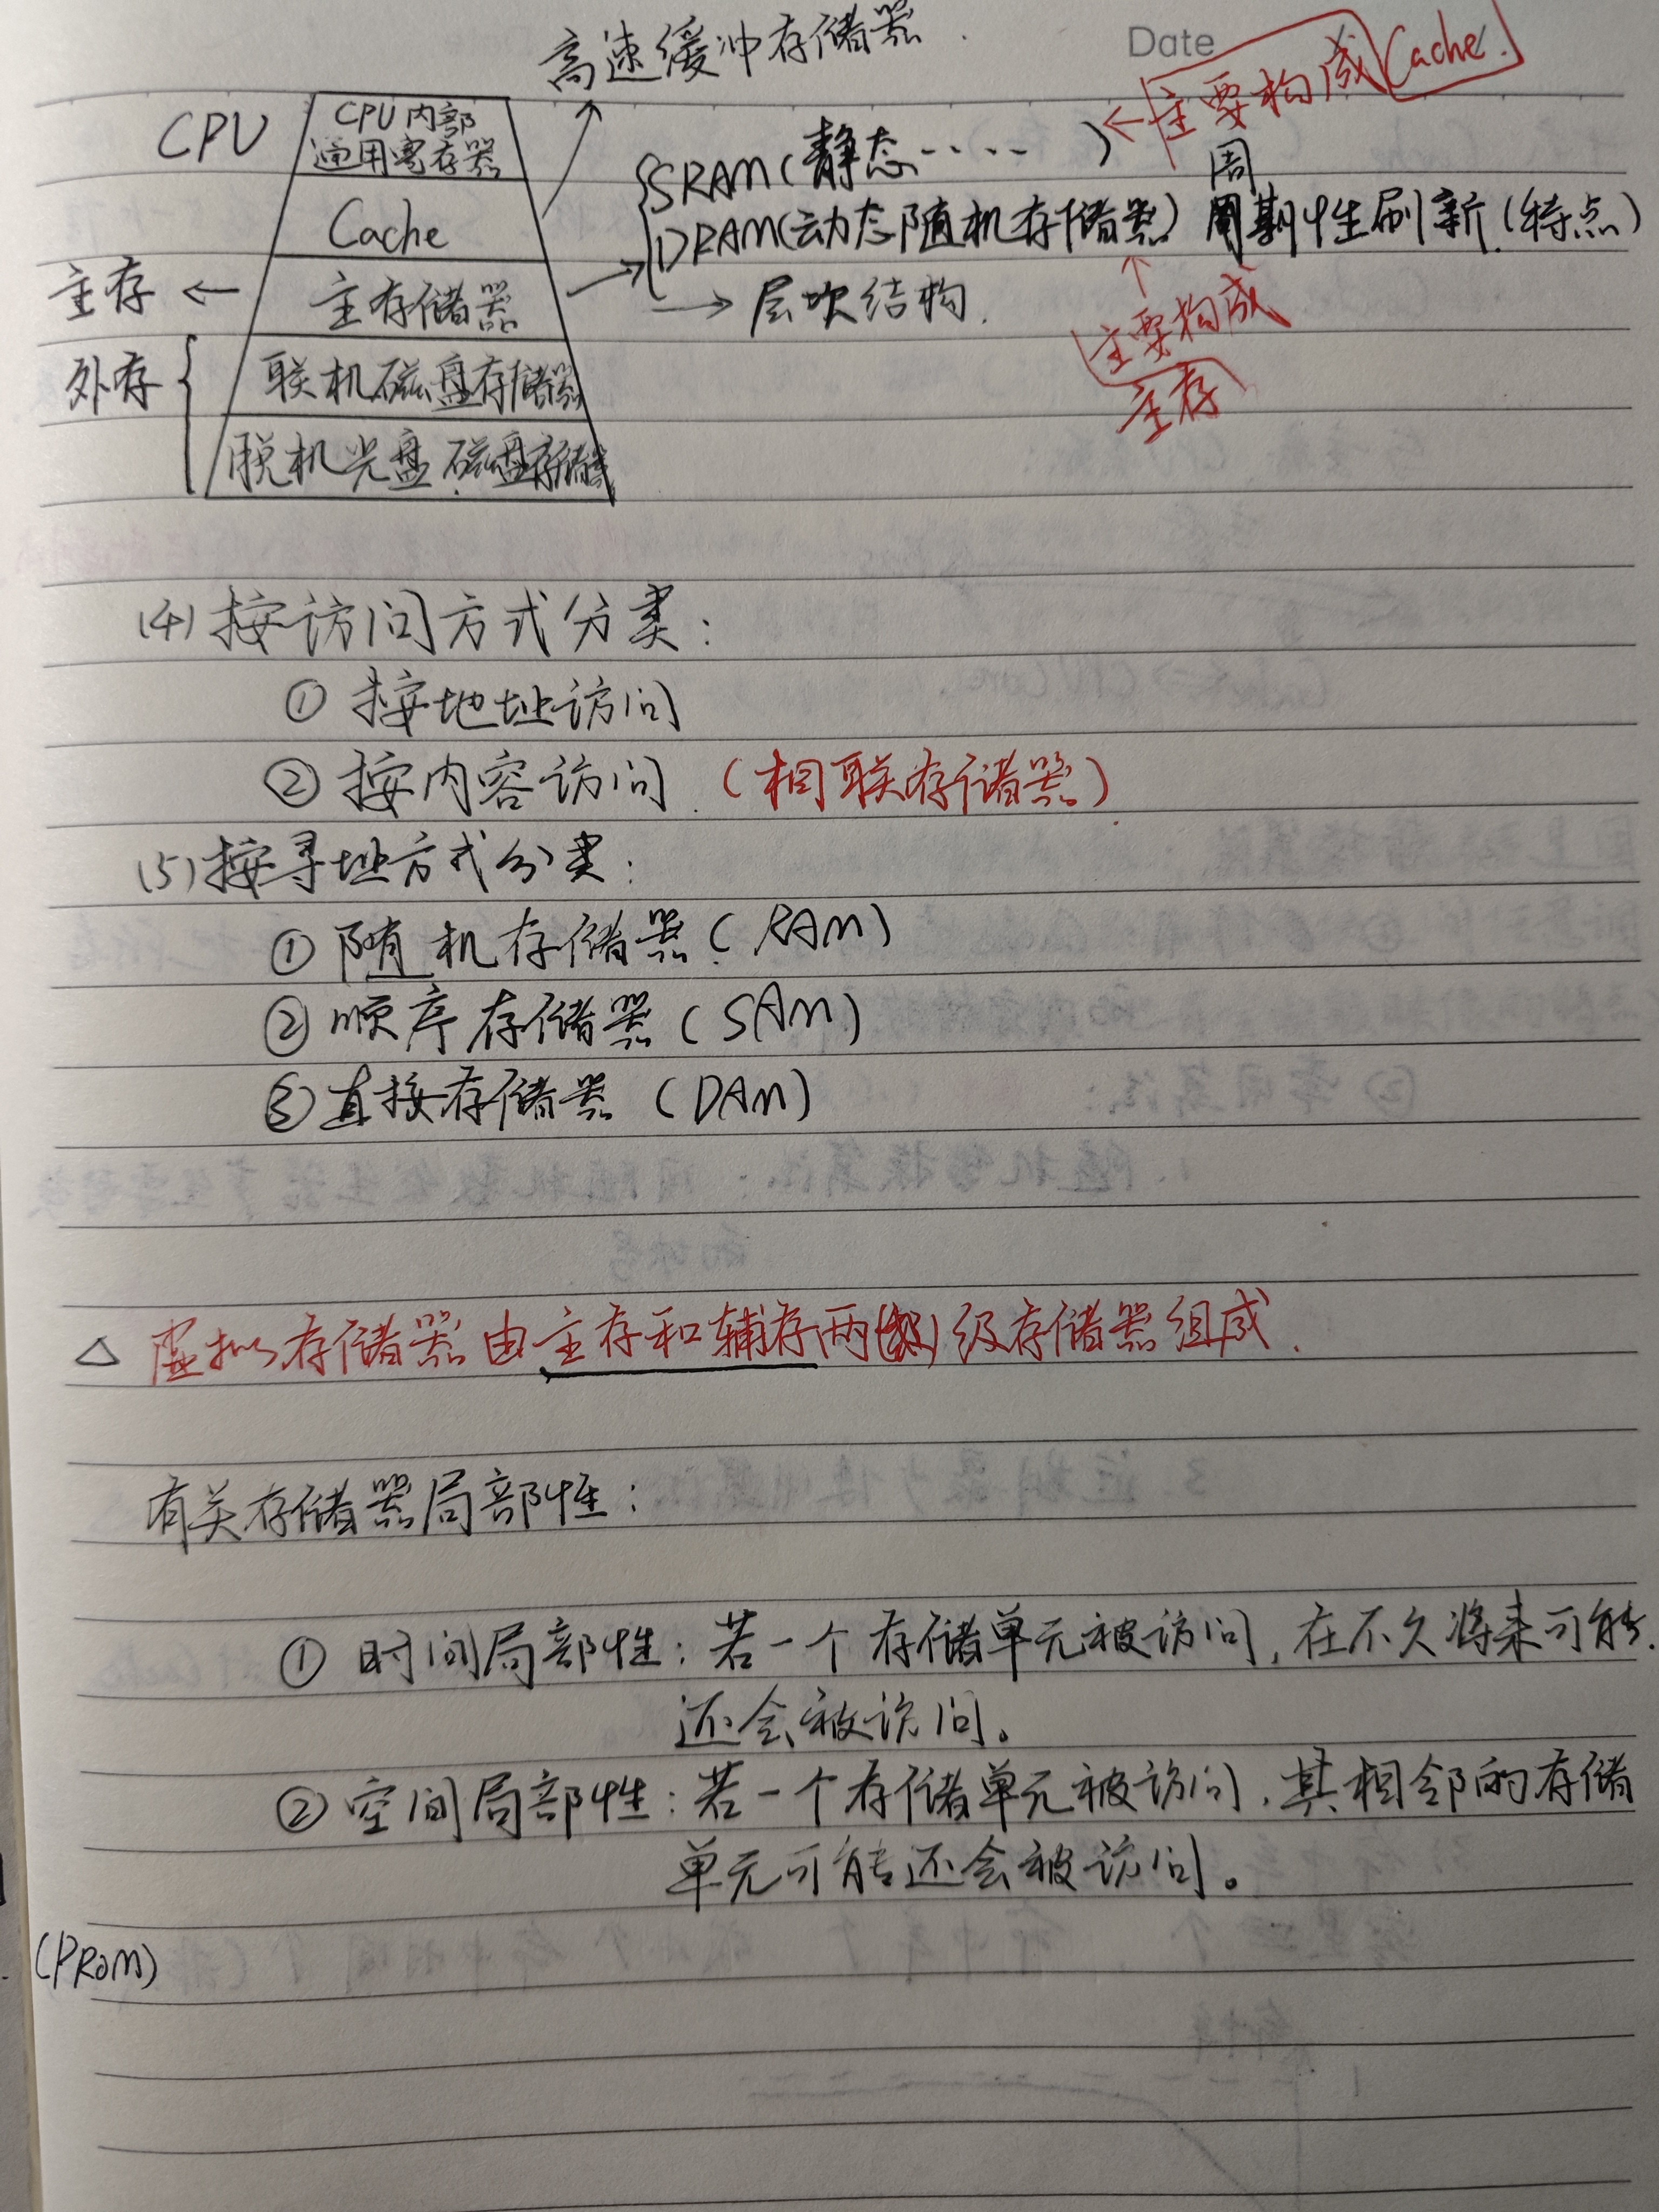 高速缓冲存储器
Date
主要构成Cache.
CPU
CPU内部
通用寄存器
SRAM(静态.....)
周
Cache
DRAM(动态随机存储器) 周期性刷新.(特点)
主存 ← 主存储器
→ 层次结构.
主要构成
主存
外存
联机磁盘存储器
脱机光盘.磁盘存储器
(4)按访问方式分类:
① 按地址访问
② 按内容访问.(相联存储器)
(5)按寻址方式分类:
① 随机存储器(RAM)
② 顺序存储器(SAM)
③ 直接存储器(DAM)
△ 虚拟存储器由主存和辅存两级存储器组成.
有关存储器局部性:
① 时间局部性:若一个存储单元被访问,在不久将来可能.
还会被访问。
② 空间局部性:若一个存储单元被访问,其相邻的存储
单元可能还会被访问。
(PROM)